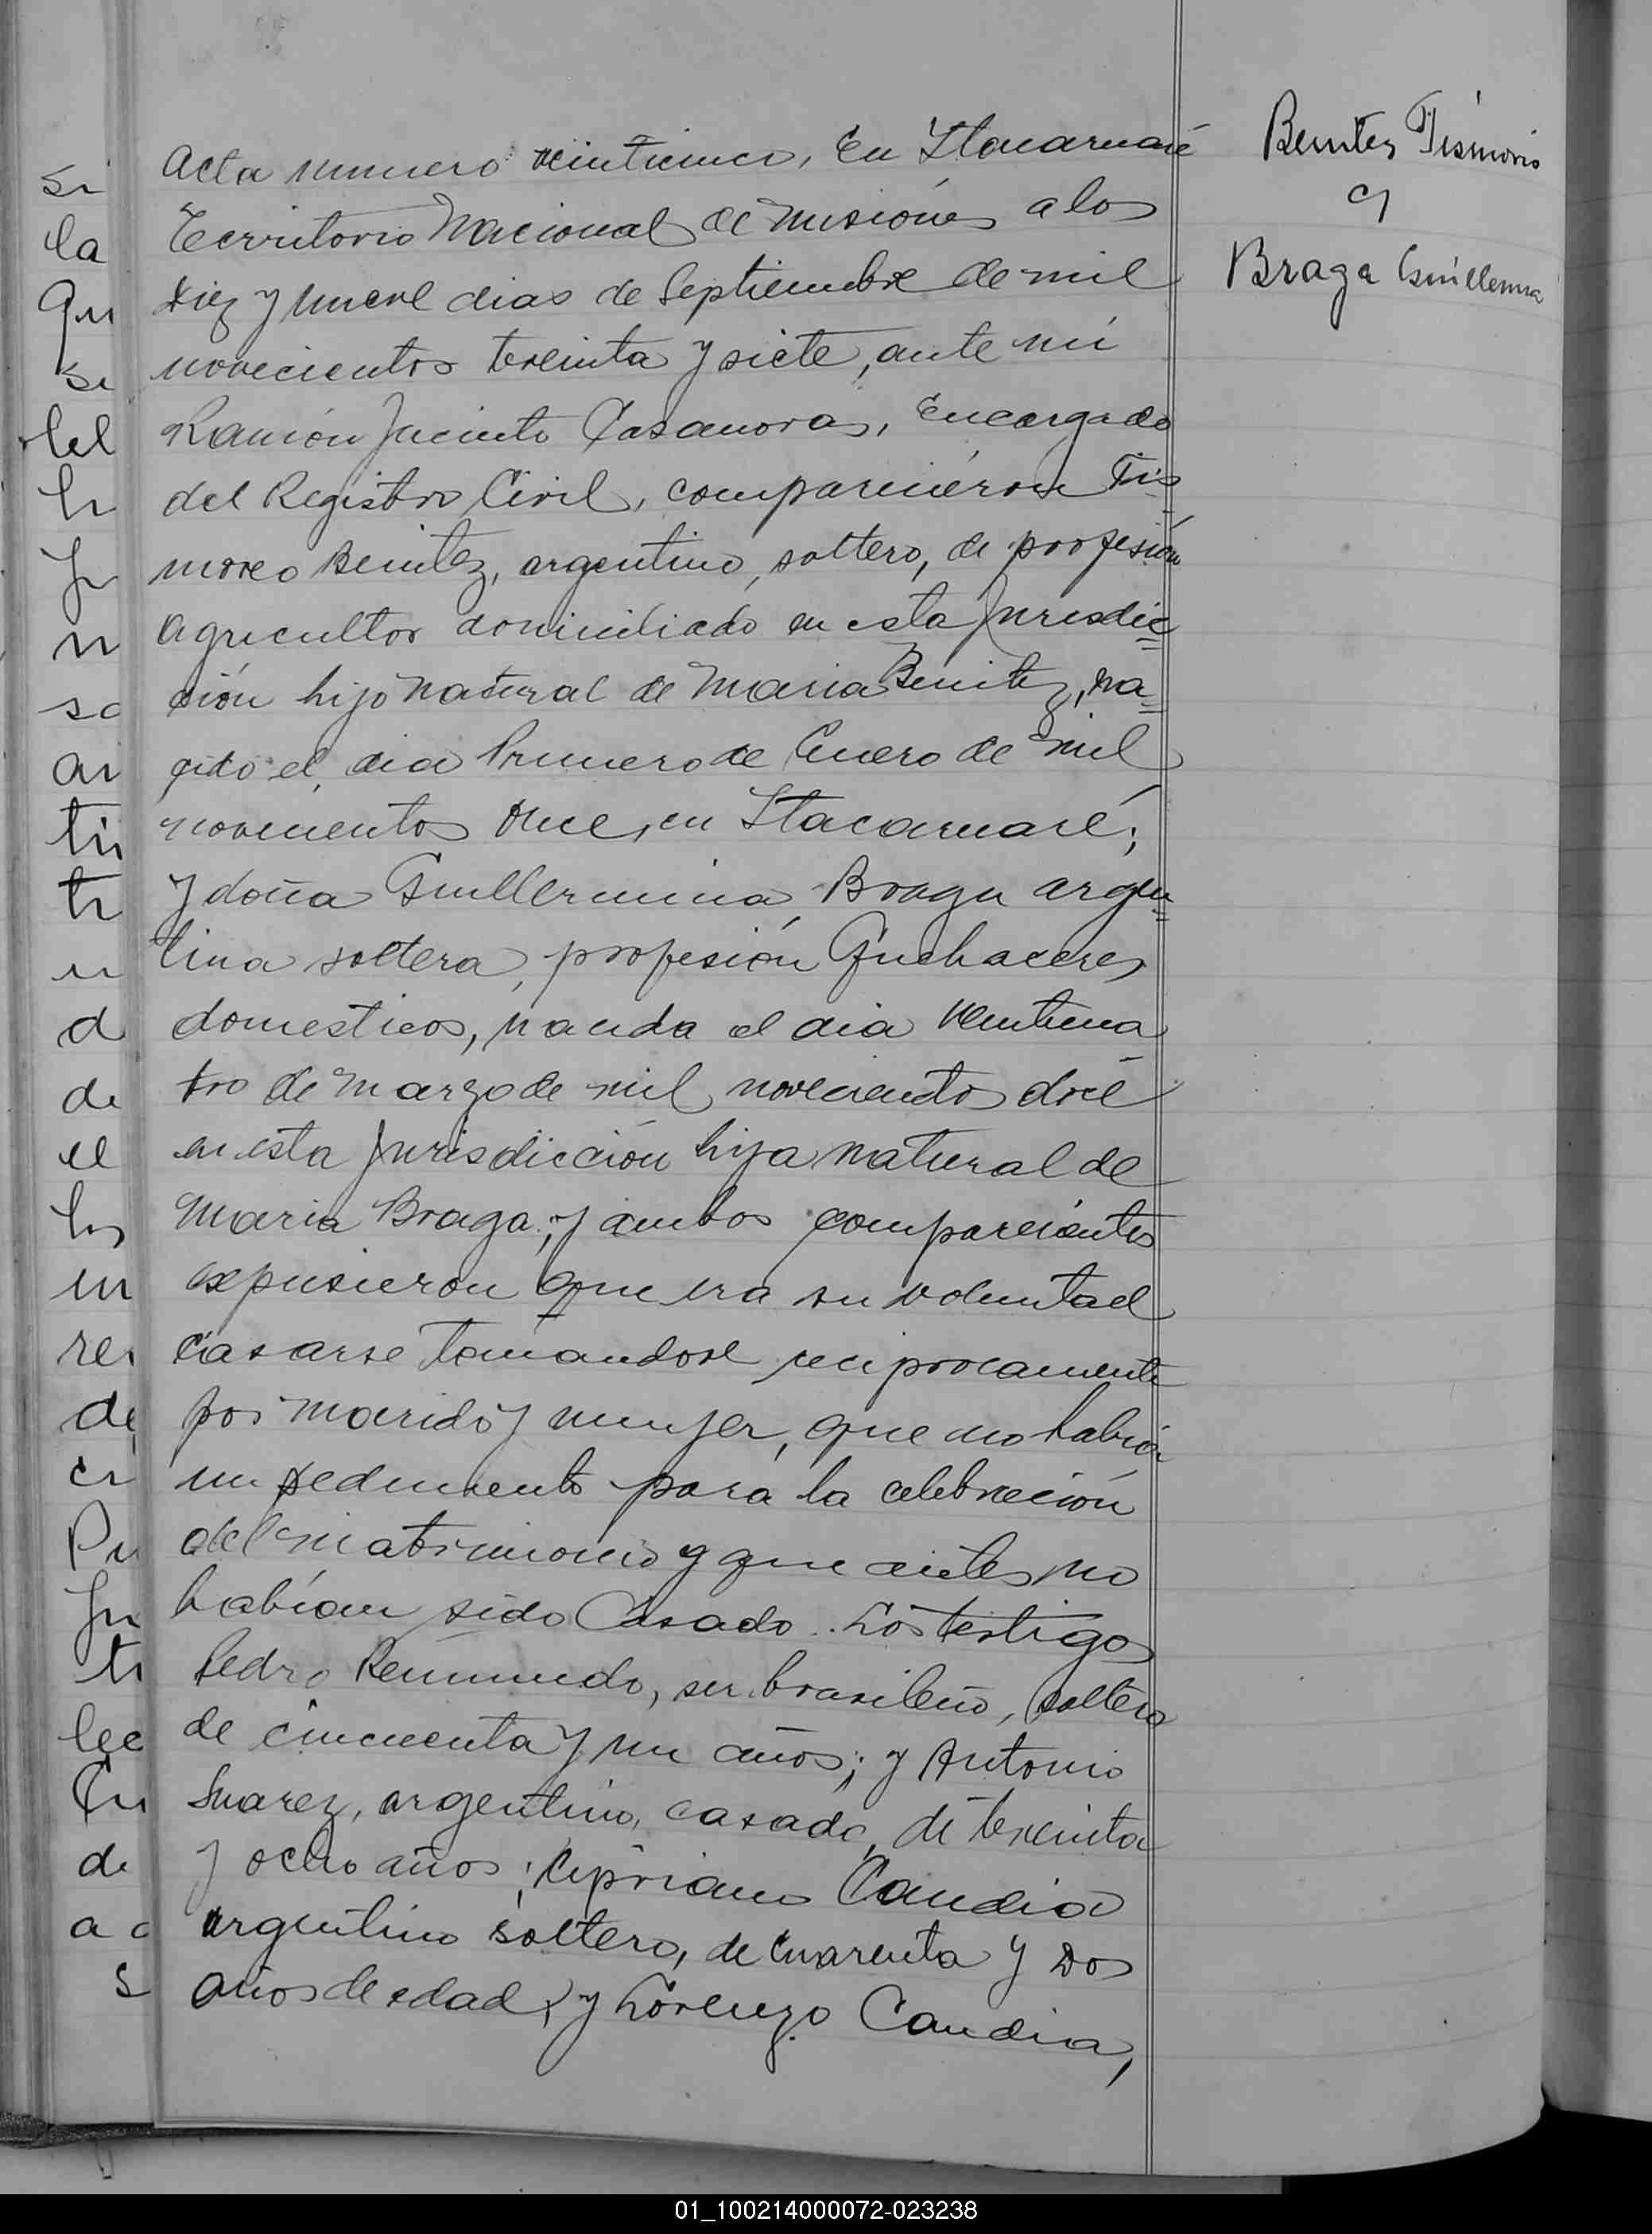 Benites Tismorio
c/
Braga Guillermina
Acta numero veinticinco, En Itacaruaré
Territorio Nacional de Misiónes a los
Diez y nueve dias de Septiembre de mil
novecientos treinta y siete, ante mi
Ramón Jacinto Casanovas, Encargado
del Registro Civil, compareciéron Tis-
moreo Benitez, argentino, soltero, de profesión
agricultor domiciliado en esta Jurisdic=
ción hijo natural de Maria Benitez, na=
cido el dia Primero de Enero de mil
novecientos once, en Itacaruaré;
y doña Guillermina Braga argen=
tina soltera, profesión Quehaceres
domesticos, nacida el dia veinticua
tro de Marzo de mil novecientos doce
en esta Jurisdicción hija natural de
Maria Braga; y ambos comparecientes
expusieron que era su voluntad
casarse tomandose reciprocamente
por marido y mujer, que no habia
impedimento para la celebración
del matrimonio y que antes no
habían sido Casado. Los testigos
Pedro Reimundo, ser brasileño, soltero
de cincuenta y un años; y Antonio
Suarez, argentino, casado, de treinta
y ocho años; Cipriano Candia
argentino soltero, de cuarenta y Dos
años de edad, y Lorenzo Candia,
si
la
qu
se
lel
h
Ju
n
so
an
tin
tr
u
d
de
el
los
in
re
de
ci
Pu
Ju
ti
lec
Cu
de
a c
s
01_100214000072-023238